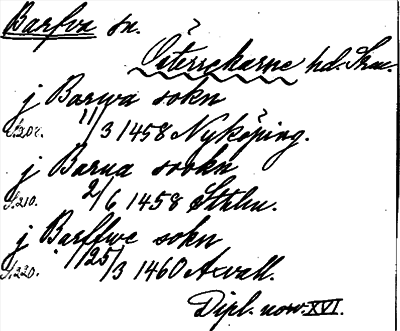 Barfva sn.
Österrekarne hd. Skm.
j Barwa sokn
S.207. 11/3 1458 Nyköping.
j Barna sookn
S.210. 2/6 1458 Sthlm.
j Barffwe sokn
S.220. 25/3 1460 Axvall.
Dipl. now. XVI.